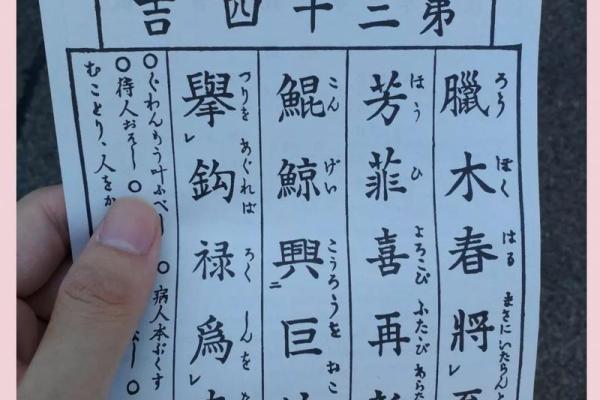 第三十四吉
臘木春將
ろう ぼく はる まさにいたらんと
芳菲喜再
ほう ひ よろこび ふたゝび あらた
鯤鯨興ニ巨
こん げい こうろうを おこ
擧レ鈎禄爲レ
つりを あぐれば ろく しんを
○ぐわんもう叶ふべ ○病人本ぶくす
○待人おそし○
むことり、人をか